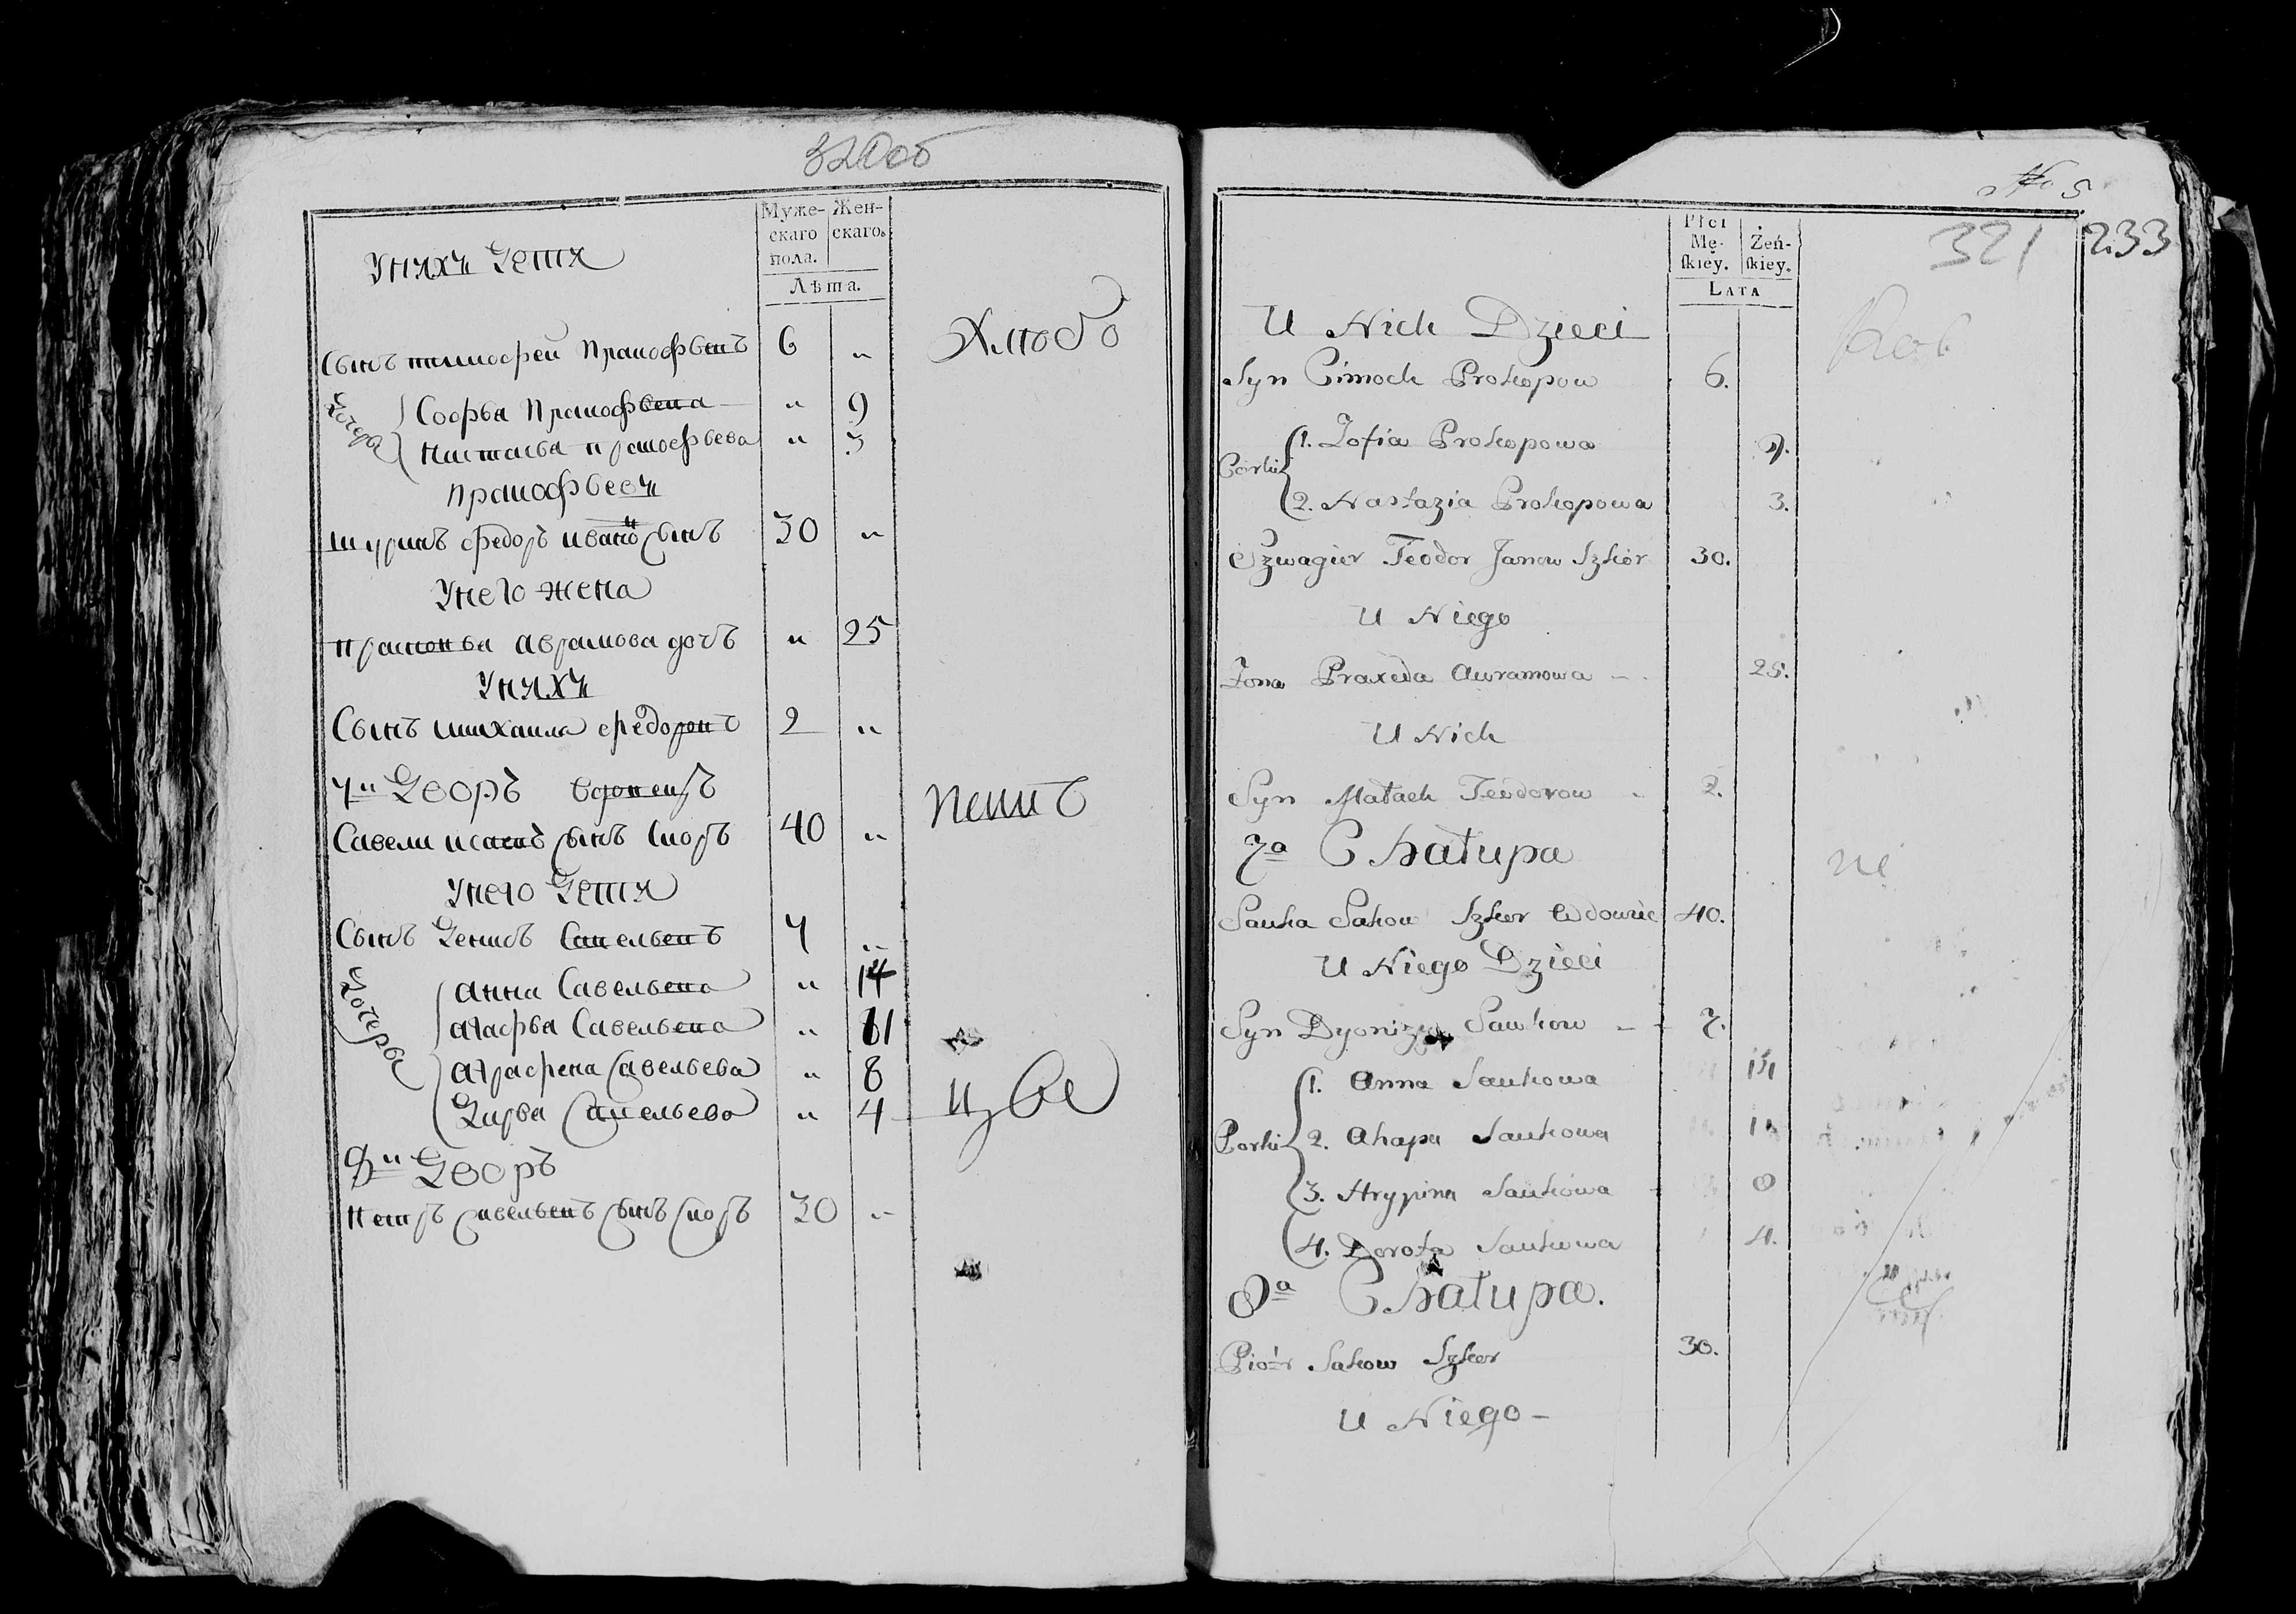 320об
Муже- Жен-
скаго скаго.
пола.
Лѣта.
Унихъ Дети
Сынъ тимофеи Пракофьевъ 6 "
Дочеры
Софья Пракофьева " 9
Настасья пракофьева " 3
пракофьевъ
шуринъ федоръ ивановъ сынъ 30 "
Унего жена
аврамова дочъ " 25
Унихъ
Сынъ михаила федоровъ 2 "
7и Дворъ вдовецъ
Савели исаевъ сынъ 40 "
Унего Дети
Сынъ Денисъ Савельевъ 7 "
Дочеры
анна Савельева " 14
агафья Савельева " 11
аграфена Савельева " 8
Дарья Савельева " 4
8и Дворъ
Петръ савельевъ сынъ 30 "
No 5
321
233
Płci
Mę- Żeń-
skiey. skiey.
LATA
U Nich Dzieci
Syn Cimoch Prokopow 6.
Córki
1. Zofia Prokopowa 9.
2. Nastazia Prokopowa 3.
Szwagier Teodor Janow Szkor 30.
U Niego
Żona Praxeda Awramowa 25.
U Nich
Syn Teodorow 2.
7a Chałupa
Sauka Sakow Szkor Wdowiec 40.
U Niego Dzieci
Syn Dyonizy Saukow 7.
Corki
1. Anna Saukowa 14
2. Ahapa Saukowa 11
3. Hrypina Saukowa 8
4. Dorota Saukowa 4.
8a Chałupa.
Piotr Sakow Szkor 30.
U Niego -